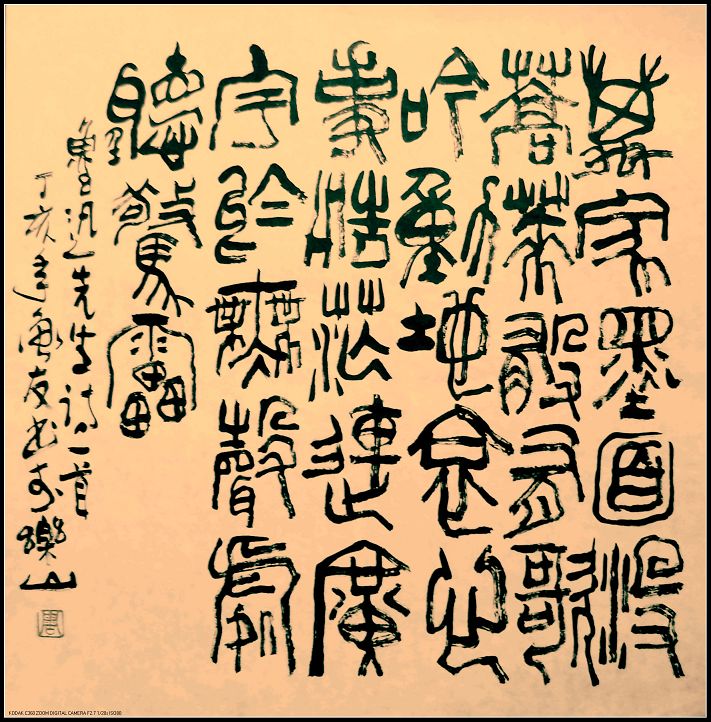 萬家墨面沒
蒿萊敢有歌
吟動地哀心
事浩茫連廣
宇於無聲處
聽驚雷
魯迅先生詩一首
丁亥年友书于樂山
KODAK C360 ZOOM DIGITAL CAMERA F2.7 1/28s ISO80